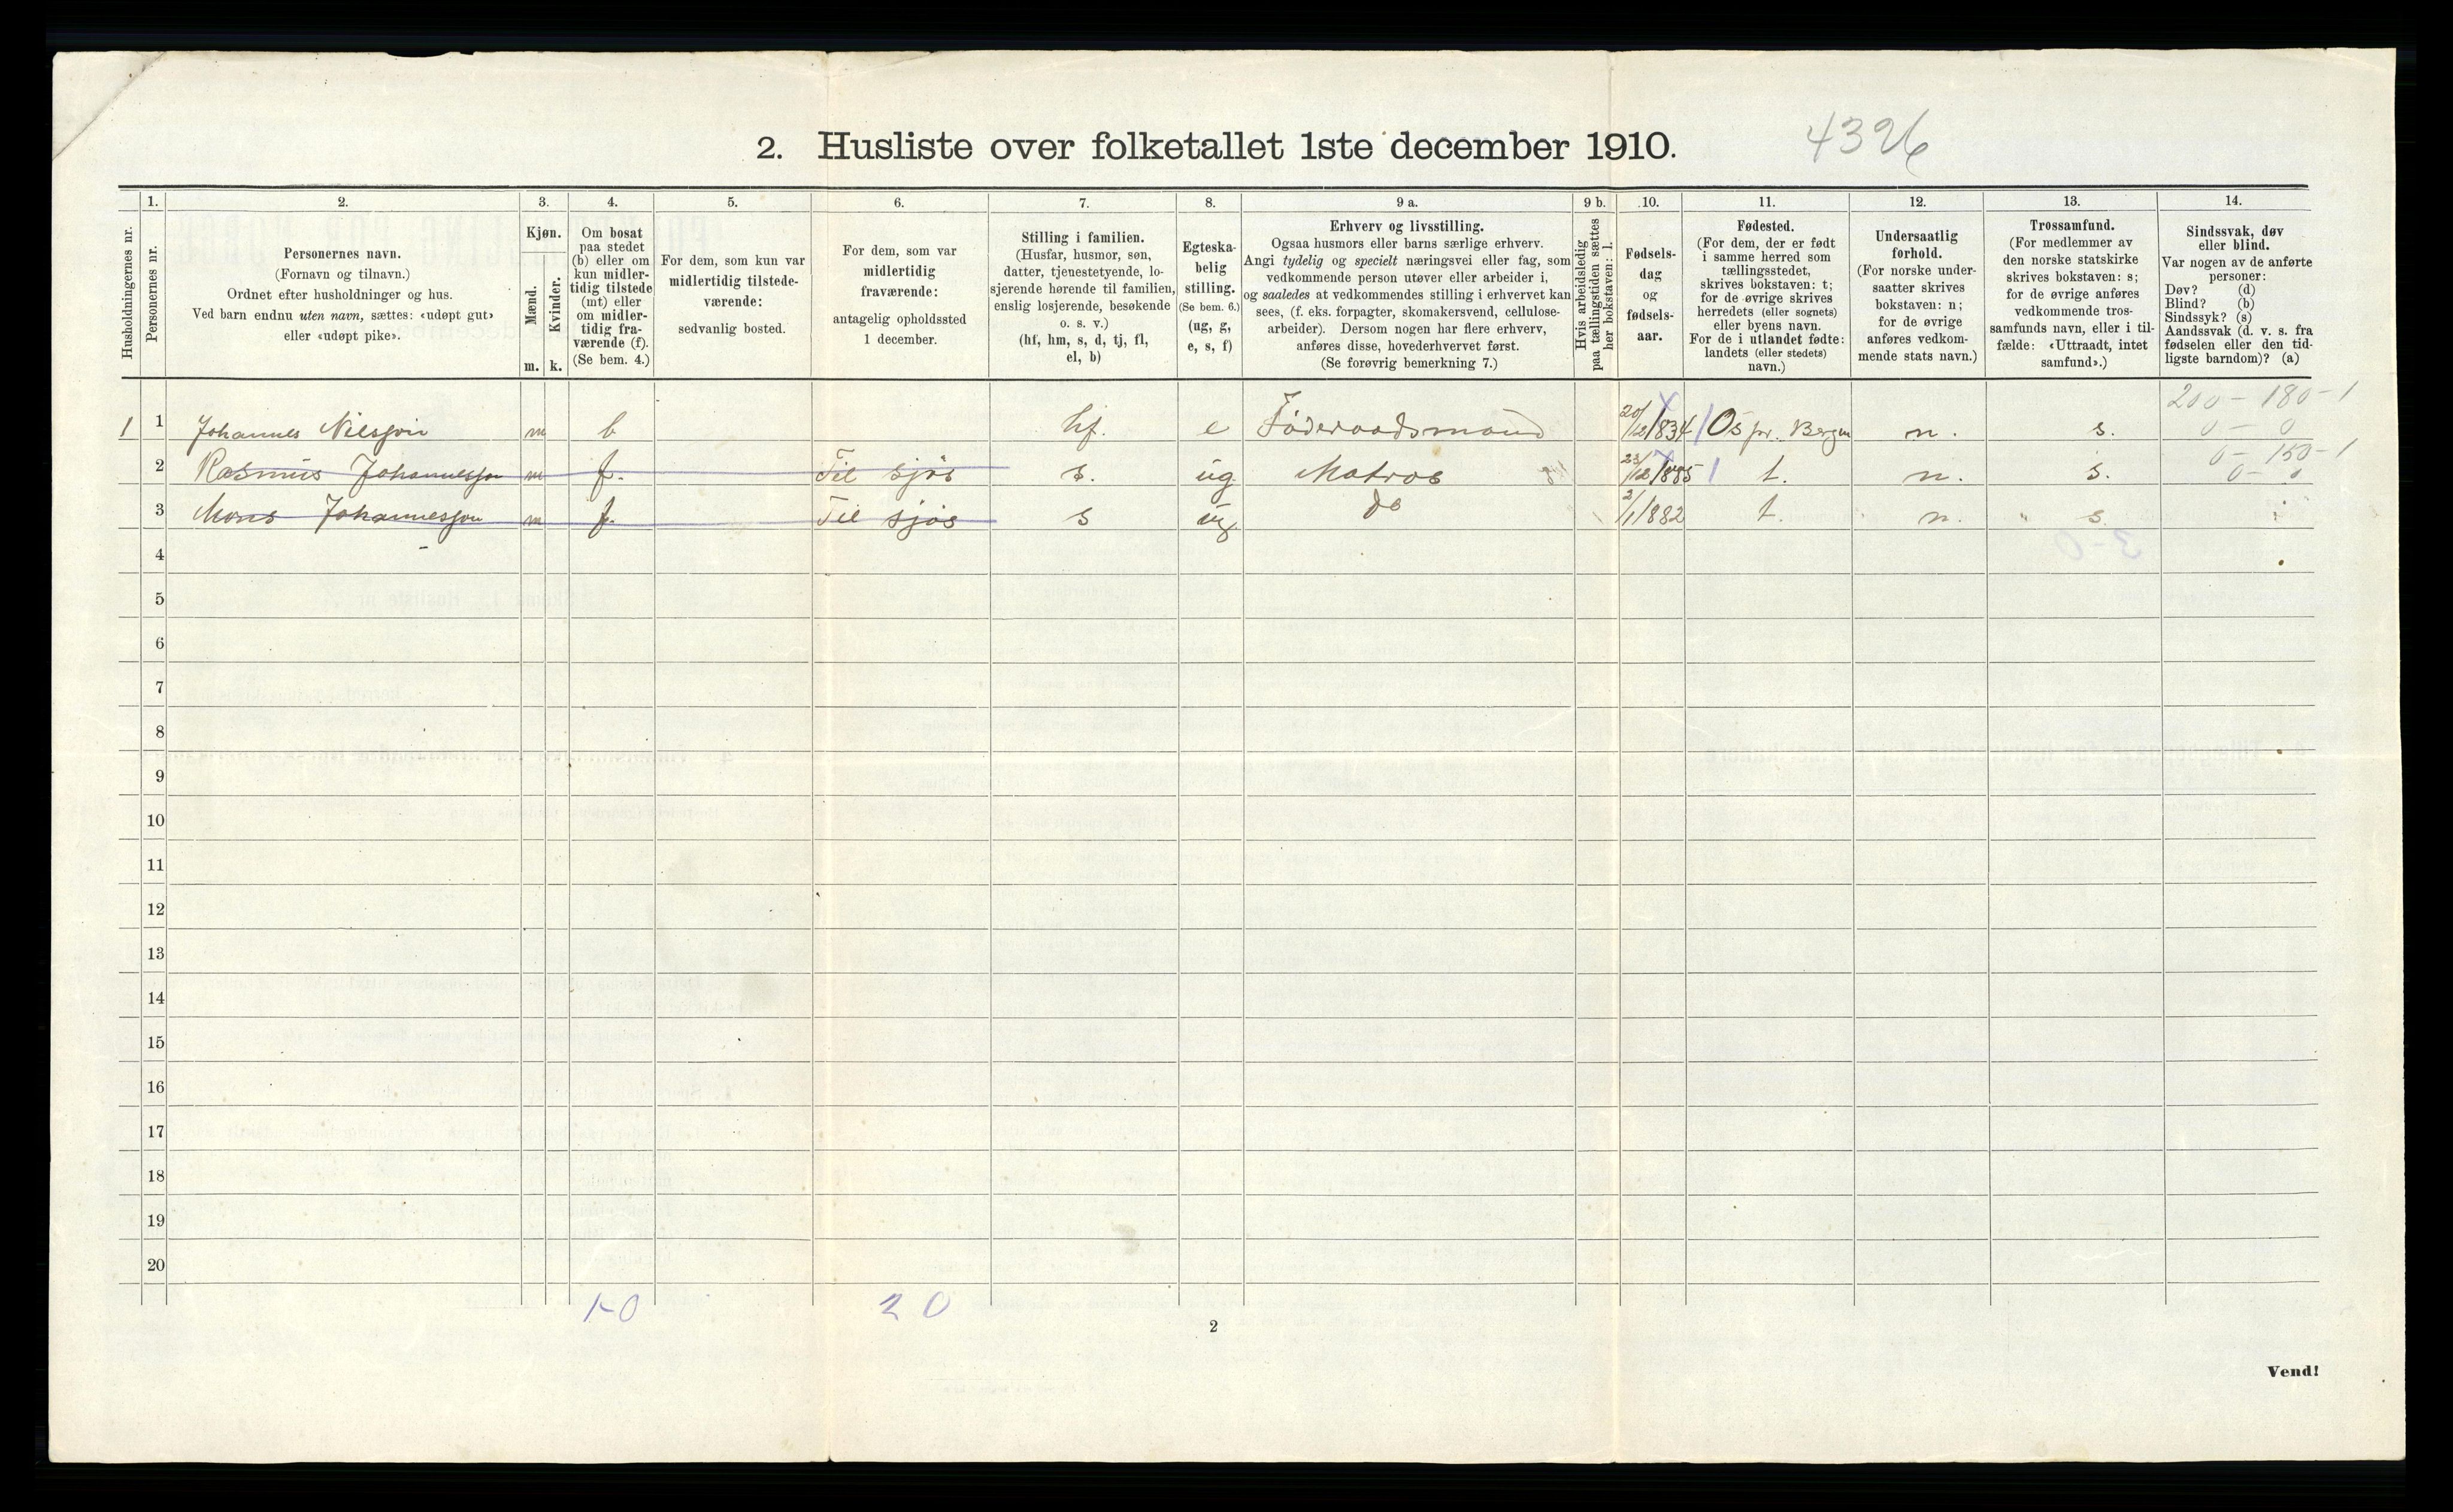 2. Husliste over folketallet 1ste december 1910. 4326
Husholdningernes nr.
1. Personernes nr.
2.
Personernes navn.
(Fornavn og tilnavn.)
Ordnet efter husholdninger og hus.
Ved barn endnu uten navn, sættes: «udøpt gut»
eller «udøpt pike».
3.
Kjøn.
Mænd. Kvinder.
m. k.
4.
Om bosat
paa stedet
(b) eller om
kun midler-
tidig tilstede
(mt) eller
om midler-
tidig fra-
værende (f).
(Se bem. 4.)
5.
For dem, som kun var
midlertidig tilstede-
værende:
sedvanlig bosted.
6.
For dem, som var
midlertidig
fraværende:
antagelig opholdssted
1 december.
7.
Stilling i familien.
(Husfar, husmor, søn,
datter, tjenestetyende, lo-
sjerende hørende til familien,
enslig losjerende, besøkende
o. s. v.)
(hf, hm, s, d, tj, fl,
el, b)
8.
Egteska-
belig
stilling.
(Se bem. 6.)
(ug, g,
e, s, f)
9 a.
Erhverv og livsstilling.
Ogsaa husmors eller barns særlige erhverv.
Angi tydelig og specielt næringsvei eller fag, som
vedkommende person utøver eller arbeider i,
og saaledes at vedkommendes stilling i erhvervet kan
sees, (f. eks. forpagter, skomakersvend, cellulose-
arbeider). Dersom nogen har flere erhverv,
anføres disse, hovederhvervet først.
(Se forøvrig bemerkning 7.)
9 b.
Hvis arbeidsledig
paa tællingstiden sættes
her bokstaven: l.
10.
Fødsels-
dag
og
fødsels-
aar.
11.
Fødested.
(For dem, der er født
i samme herred som
tællingsstedet,
skrives bokstaven: t;
for de øvrige skrives
herredets (eller sognets)
eller byens navn.
For de i utlandet fødte:
landets (eller stedets)
navn.)
12.
Undersaatlig
forhold.
(For norske under-
saatter skrives
bokstaven: n;
for de øvrige
anføres vedkom-
mende stats navn.)
13.
Trossamfund.
(For medlemmer av
den norske statskirke
skrives bokstaven: s;
for de øvrige anføres
vedkommende tros-
samfunds navn, eller i til-
fælde: «Uttraadt, intet
samfund».)
14.
Sindssvak, døv
eller blind.
Var nogen av de anførte
personer:
Døv? (d)
Blind? (b)
Sindssyk? (s)
Aandssvak (d. v. s. fra
fødselen eller den tid-
ligste barndom)? (a)
200 - 180 - 1
1 1 Johannes Nilsson m b hf. e Föderaadsmand 20/12/834 Os pr. Bergen n. s. 0 - 0
0 - 150 - 1
2 Rasmus Johannesson m f. Til sjøs s. ug. Matros 23/12/885 t. n. s. 0 -
3 Mons Johannesson m f. Til sjøs s ug. do 2/1/882 t. n. s.
4
5
6
7
8
9
10
11
12
13
14
15
16
17
18
19
20
1-0 2 0
2
Vend!